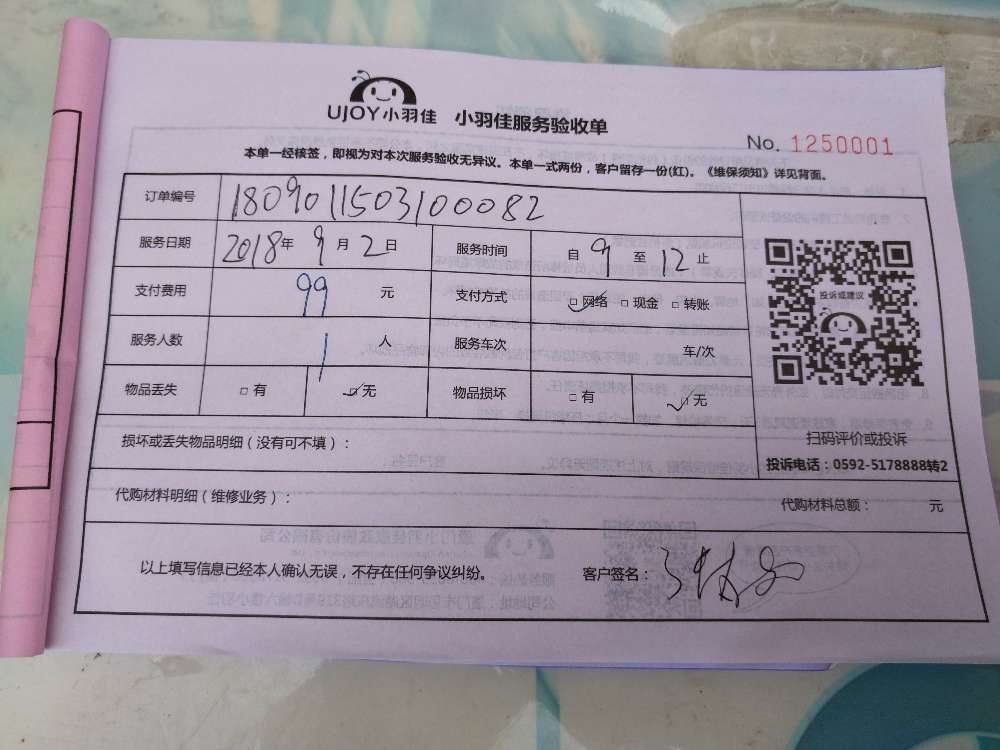 UJOY小羽佳 小羽佳服务验收单
No. 1250001
本单一经核签，即视为对本次服务验收无异议。本单一式两份，客户留存一份(红)。《维保须知》详见背面。
订单编号 180901150310​0082
服务日期 2018年 9月 2日 服务时间 自 9 至 12 止
支付费用 99 元 支付方式 □网络 □现金 □转账
服务人数 1 人 服务车次 车/次
物品丢失 □有 □无 物品损坏 □有 □无
投诉或建议
扫码评价或投诉
投诉电话：0592-5178888转2
损坏或丢失物品明细（没有可不填）：
代购材料明细（维修业务）： 代购材料总额： 元
以上填写信息已经本人确认无误，不存在任何争议纠纷。 客户签名：